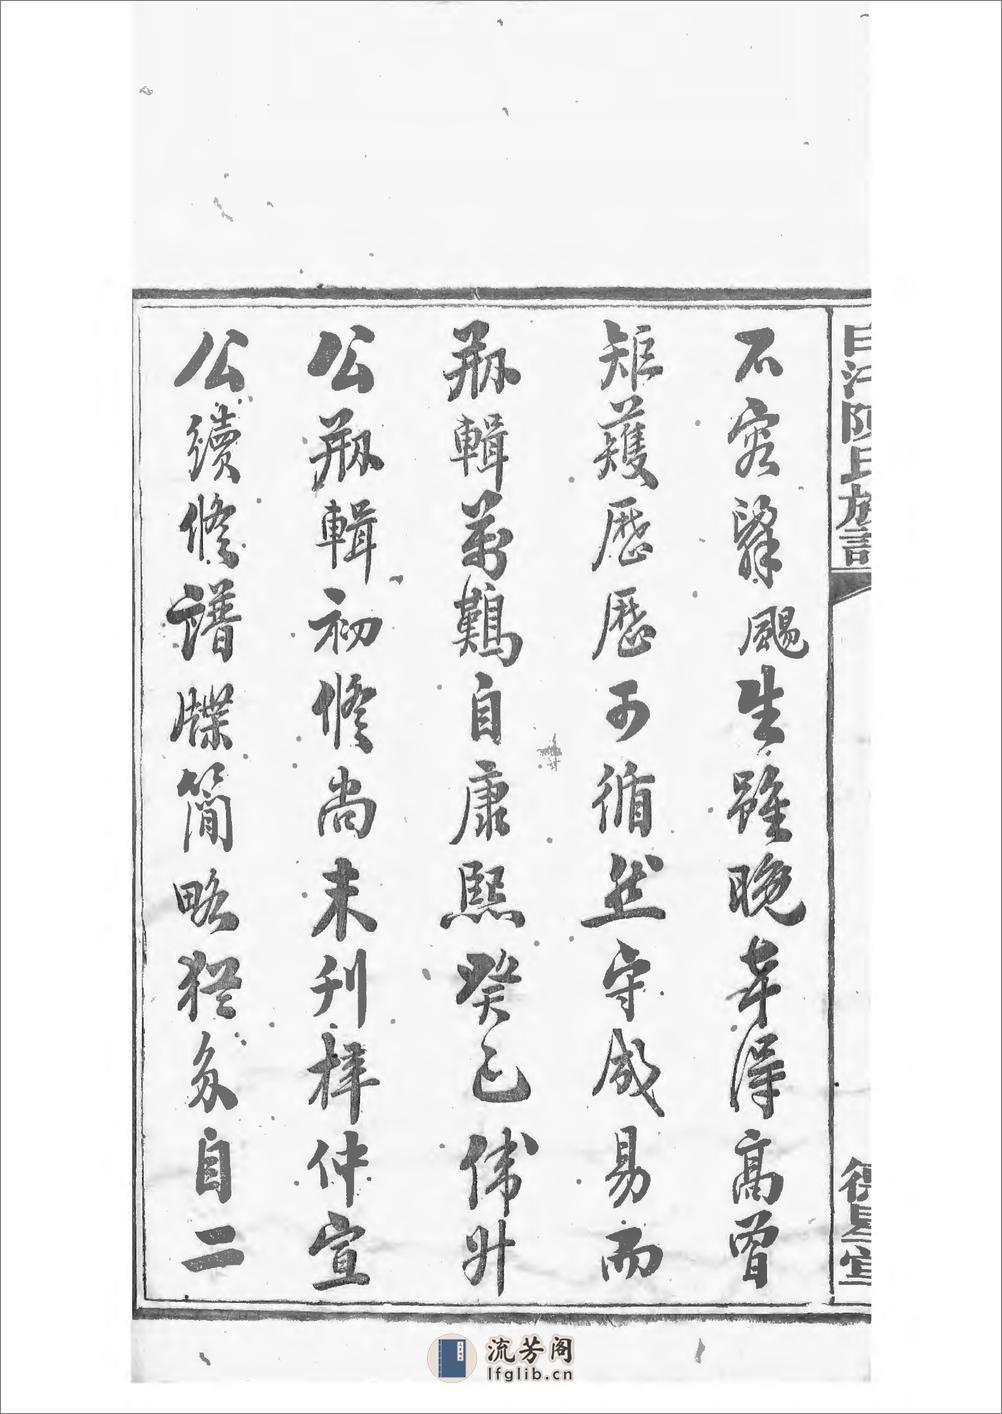 不容緊颺生雖晚幸得高曾
矩蒦歷歷可循然守成易而
刱輯蓋難自康熙癸巳偉升
公刱輯初修尚未刊梓仲宣
公續修譜牒簡略猶多自二
陳氏族譜
德星堂
流芳阁
lfglib.cn